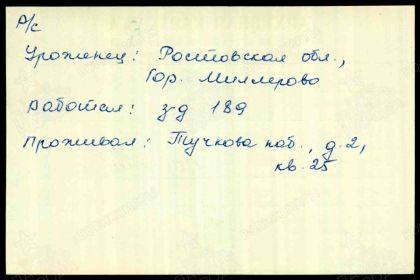 Р/с
Уроженец: Ростовская обл.,
Гор. Миллерово
Работал: з-д 189
Проживал: Тучкова наб., д.2,
кв. 25